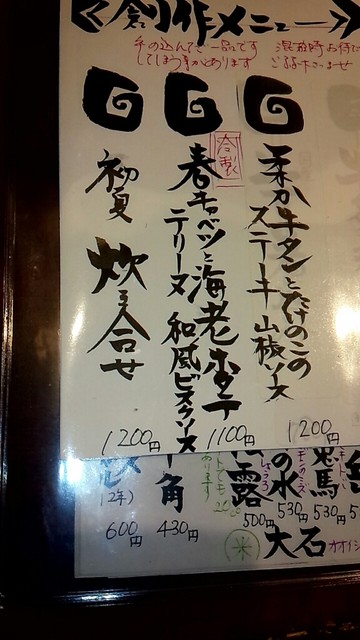 創作メニュー
手の込んだ一品です
混雑時お待た
してしまう事があります
ご了承下さいませ
柔か牛タンとたけのこの
ステーキ 山椒ソース
1200円
冷製
春キャベツと海老ホタテ
テリーヌ 和風ビスクソース
1100円
初夏 炊き合せ
1200円
鬼馬
530円
の水
530円
露
500円
角
430円
(2年)
600円
米
大石